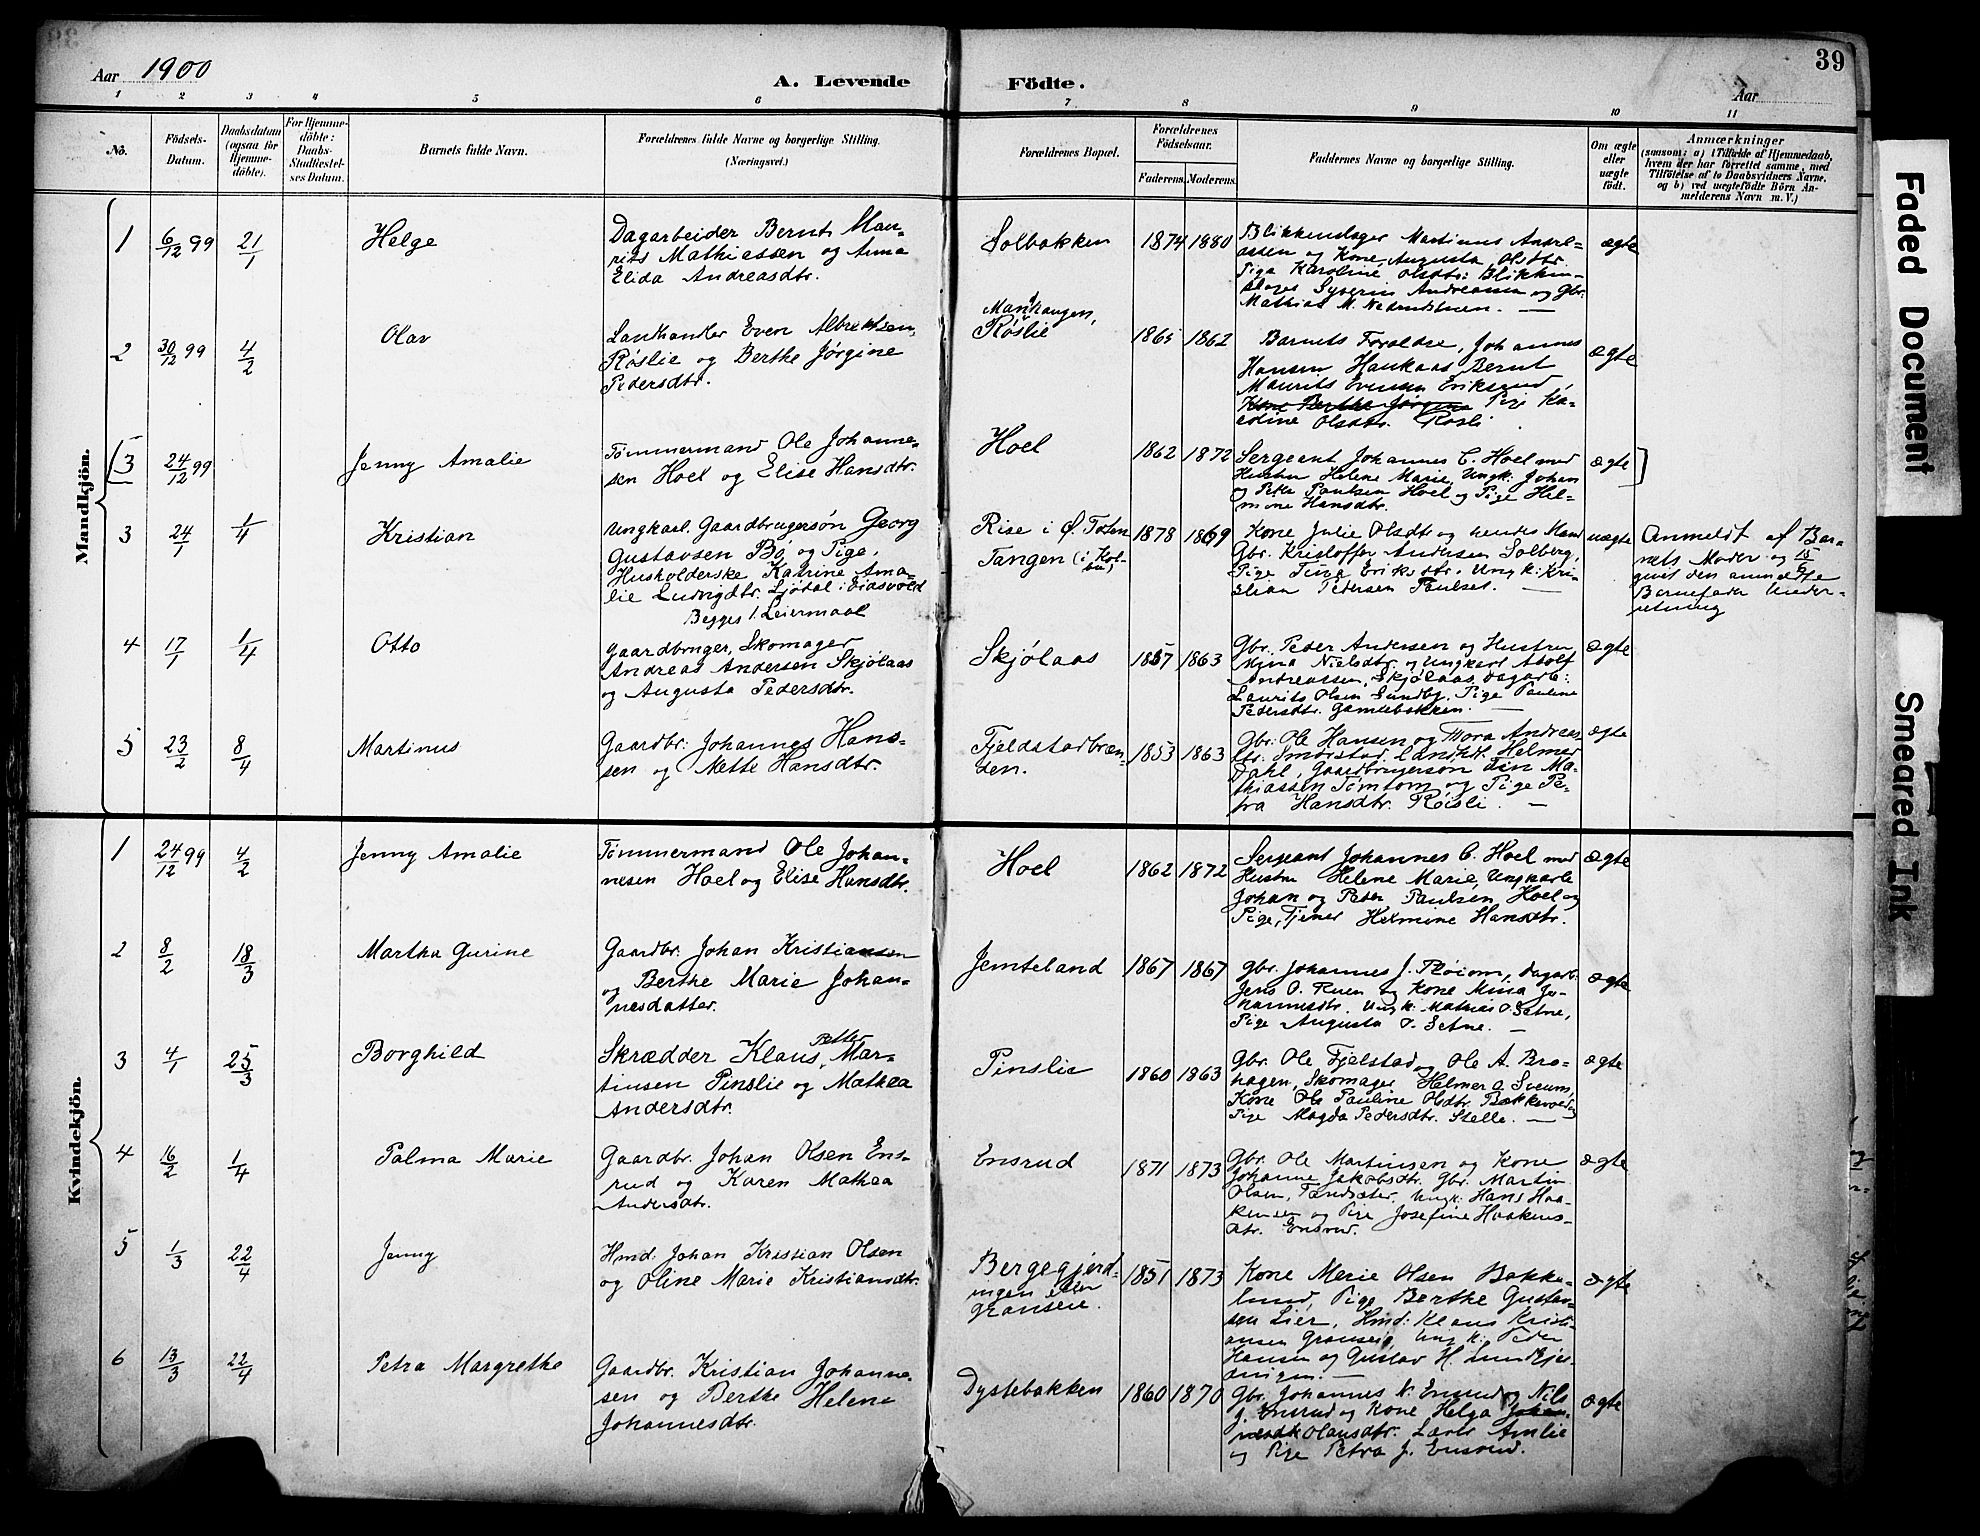 39
Aar 1900
A. Levende Födte.
Aar
1 2 3 4 5 6 7 8 9 10 11
No.
Födsels-Datum.
Daabsdatum (ogsaa for Hjemme-döbte).
For Hjemme-döbte: Daabs-Stadfæstel-ses Datum.
Barnets fulde Navn.
Forældrenes fulde Navne og borgerlige Stilling.
(Næringsvei.)
Forældrenes Bopæl.
Forældrenes Fødselsaar.
Faderens. Moderens.
Faddernes Navne og borgerlige Stilling.
Om ægte eller uægte födt.
Anmærkninger
(saasom: a) i Tilfælde af Hjemmedaab,
hvem der har forrettet samme, med
Tilföielse af to Daabsvidners Navne,
og b) ved uægtefödte Börn An-
melderens Navn m. V.)
Mandkjön.
1 6/12 99 21/1 Helge
Dagarbeider Bernt Mau-
rits Mathiassen og Anna
Elida Andreasdtr.
Solbakken 1874 1880
Blikkenslager Martinus Andre-
assen og Kone Augusta Olsdtr.
Pige Karoline Olsdtr: Blikken-
slager Syverin Andreassen og Gbr.
Mathias M.
ægte
2 30/12 99 4/2 Olav
Lanhandler Even Albrektsen
Røslie og Berthe Jørgine
Pedersdtr.
Røslie 1865 1862
Barnets Forældre, Johannes
Hansen Haukaas Bernt
Maurits Evensen Eriksrud,
Kone Berthe Jørgine Pige Ka-
rdine Olsdtr. Røsli.
ægte
3 24/12 99 Jenny Amalie
Tømmermand Ole Johanne-
sen Hoel og Elise Hansdtr.
Hoel 1862 1872
Sergeant Johannes C. Hoel med
Hustru Helene Marie, Ungk: Johan
og Peter Paulsen Hoel og Pige Hel-
mine Hansdtr.
ægte
3 24/1 1/4 Kristian
Ungkarl. Gaardbrugersøn Georg
Gustavsen Bø og Pige,
Husholderske Katrine Ama-
lie Ludvigdtr. Sjødal i Eidsvold
Begges 1. Leiermaal
Rise i Ø. Toten
Tangen (i Kol-
bu)
1878 1869
Kone Julie Olsdtr og hendes Mand
Gbr. Kristoffer Andersen Solberg,
Pige Tina Eriksdtr. Ungk: Kri-
stian Pedersen Paulset.
uægte
Anmeldt af Bar-
nets Moder og 15/6
givet den anmeldte
Barnefader Under-
retning
4 17/1 1/4 Otto
Gaardbruger, Skomager
Andreas Andersen Skjølaas
og Augusta Pedersdtr.
Skjølaas 1857 1863
Gbr. Peder Andersen og Hustru
Nielsdtr. og Ungkarl Adolf
Andreassen, Skjølaas, dagarb:
Laurits Olsen Sundby, Pige Pauline
Pedersdtr. Gamlebakken.
ægte
5 23/2 8/4 Martinus
Gaardbr: Johannes Hans-
sen og Mette Hansdtr.
Fjeldstadbræn-
den.
1853 1863
Gbr. Ole Hansen og Thora Andreas
dtr. Smørstad, Landhdl. Helmer
Dahl, Gaardbrugersøn Ma-
thiassen Tømtom og Pige Pe-
tra Hansdtr. Røisli.
ægte
Kvindekjön.
1 24/12 99 4/2 Jenny Amalie
Tømmermand Ole Johan-
nesen Hoel og Elise Hansdtr.
Hoel 1862 1872
Sergeant Johannes C. Hoel med
Hustru Helene Marie, Ungkarle
Johan og Peter Paulsen, Hoel og
Pige, Tjener Helmine Hansdtr.
ægte
2 8/2 18/3 Martha Gurine
Gaardbr. Johan Kristiansen
og Berthe Marie Johan-
nesdatter.
Jemteland 1867 1867
Gbr. Johannes J. Røiom, Dagarb.
Jens O. Ruen og Kone Mina Jo-
hannesdtr. Ungk: Mathias O. Sætne,
Pige Augusta O. Sætne.
ægte
3 4/1 25/3 Borghild
Skrædder Klaus Petter Mar-
tinsen Pinslie og Mathea
Andersdtr.
Pinslie 1860 1863
Gbr. Ole Fjelstad og Ole A. Bro-
hagen, Skomager Helmer O. Sveum,
Kone Ole Pauline Olsdtr. Bakkevold og
Pige Magda Pedersdtr. Stelle.
ægte
4 16/2 1/4 Palma Marie
Gaardbr. Johan Olsen Ens-
rud og Karen Mathea
Andersdtr.
Ensrud 1871 1873
Gbr. Ole Martinsen og Kone
Johanne Jakobsdtr. Gbr. Martin
Olsen, Tandsæter, Ungk: Hans Haa-
kensen og Pige Josefine Haakens-
dtr. Ensrud.
ægte
5 1/3 22/4 Jenny
Hmd: Johan Kristian Olsen
og Oline Marie Kristiansdtr.
Bergegjerd-
ingen eller
Granseie.
1851 1873
Kone Merie Olsen Bakke-
lund, Pige Berthe Gustav-
sen Lier, Hmd: Klaus Kristi-
ansen Granseie, Ungk: Peder
Hansen og Gustav H. Lundgjer-
dingen.
ægte
6 13/3 22/4 Petra Margrethe
Gaardbr. Kristian Johanne-
sen og Berthe Helene
Johannesdtr.
Dystebakken 1860 1870
Gbr. Johannes N. Ensrud og Nils
J. Ensrud og Kone Helga Johan-
nesdtr Olausdtr. Lærer Amlie
og Pige Petra J. Ensrud.
ægte
Faded Document
Smeared Ink